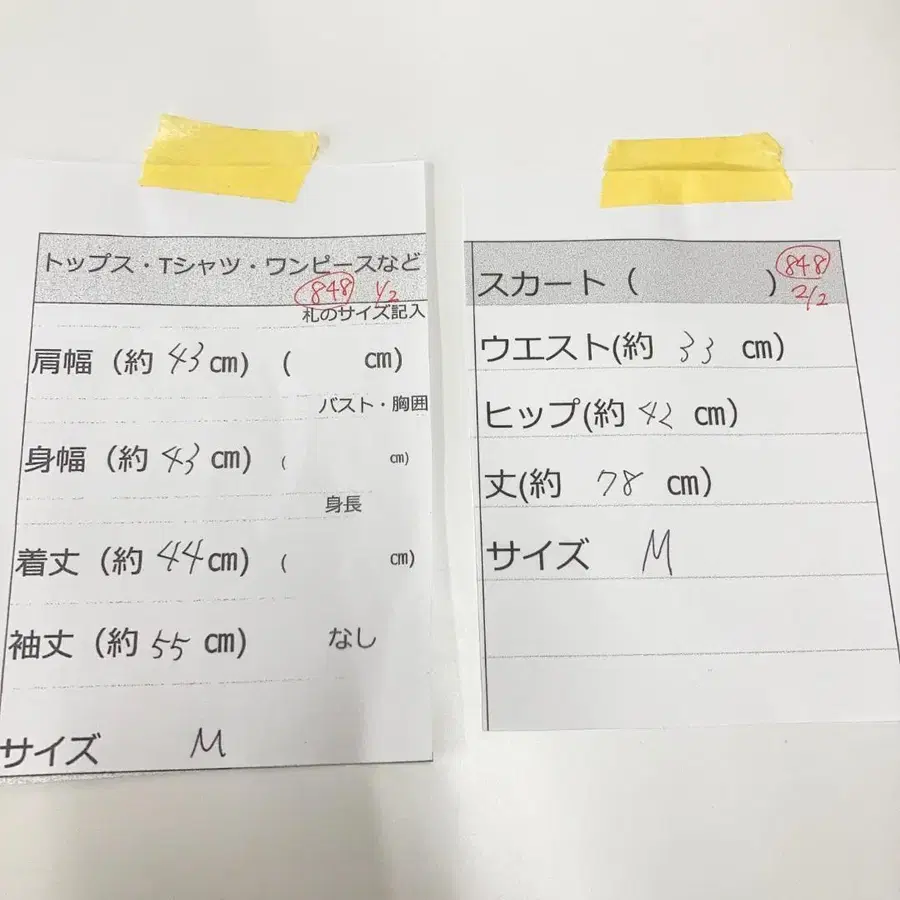 トップス・Tシャツ・ワンピースなど
848 1/2
札のサイズ記入
肩幅 (約 43 cm) ( cm)
バスト・胸囲
身幅 (約 43 cm) ( cm)
身長
着丈 (約 44 cm) ( cm)
袖丈 (約 55 cm) なし
サイズ M
スカート ( ) 848
2/2
ウエスト(約 33 cm)
ヒップ(約 42 cm)
丈(約 78 cm)
サイズ M